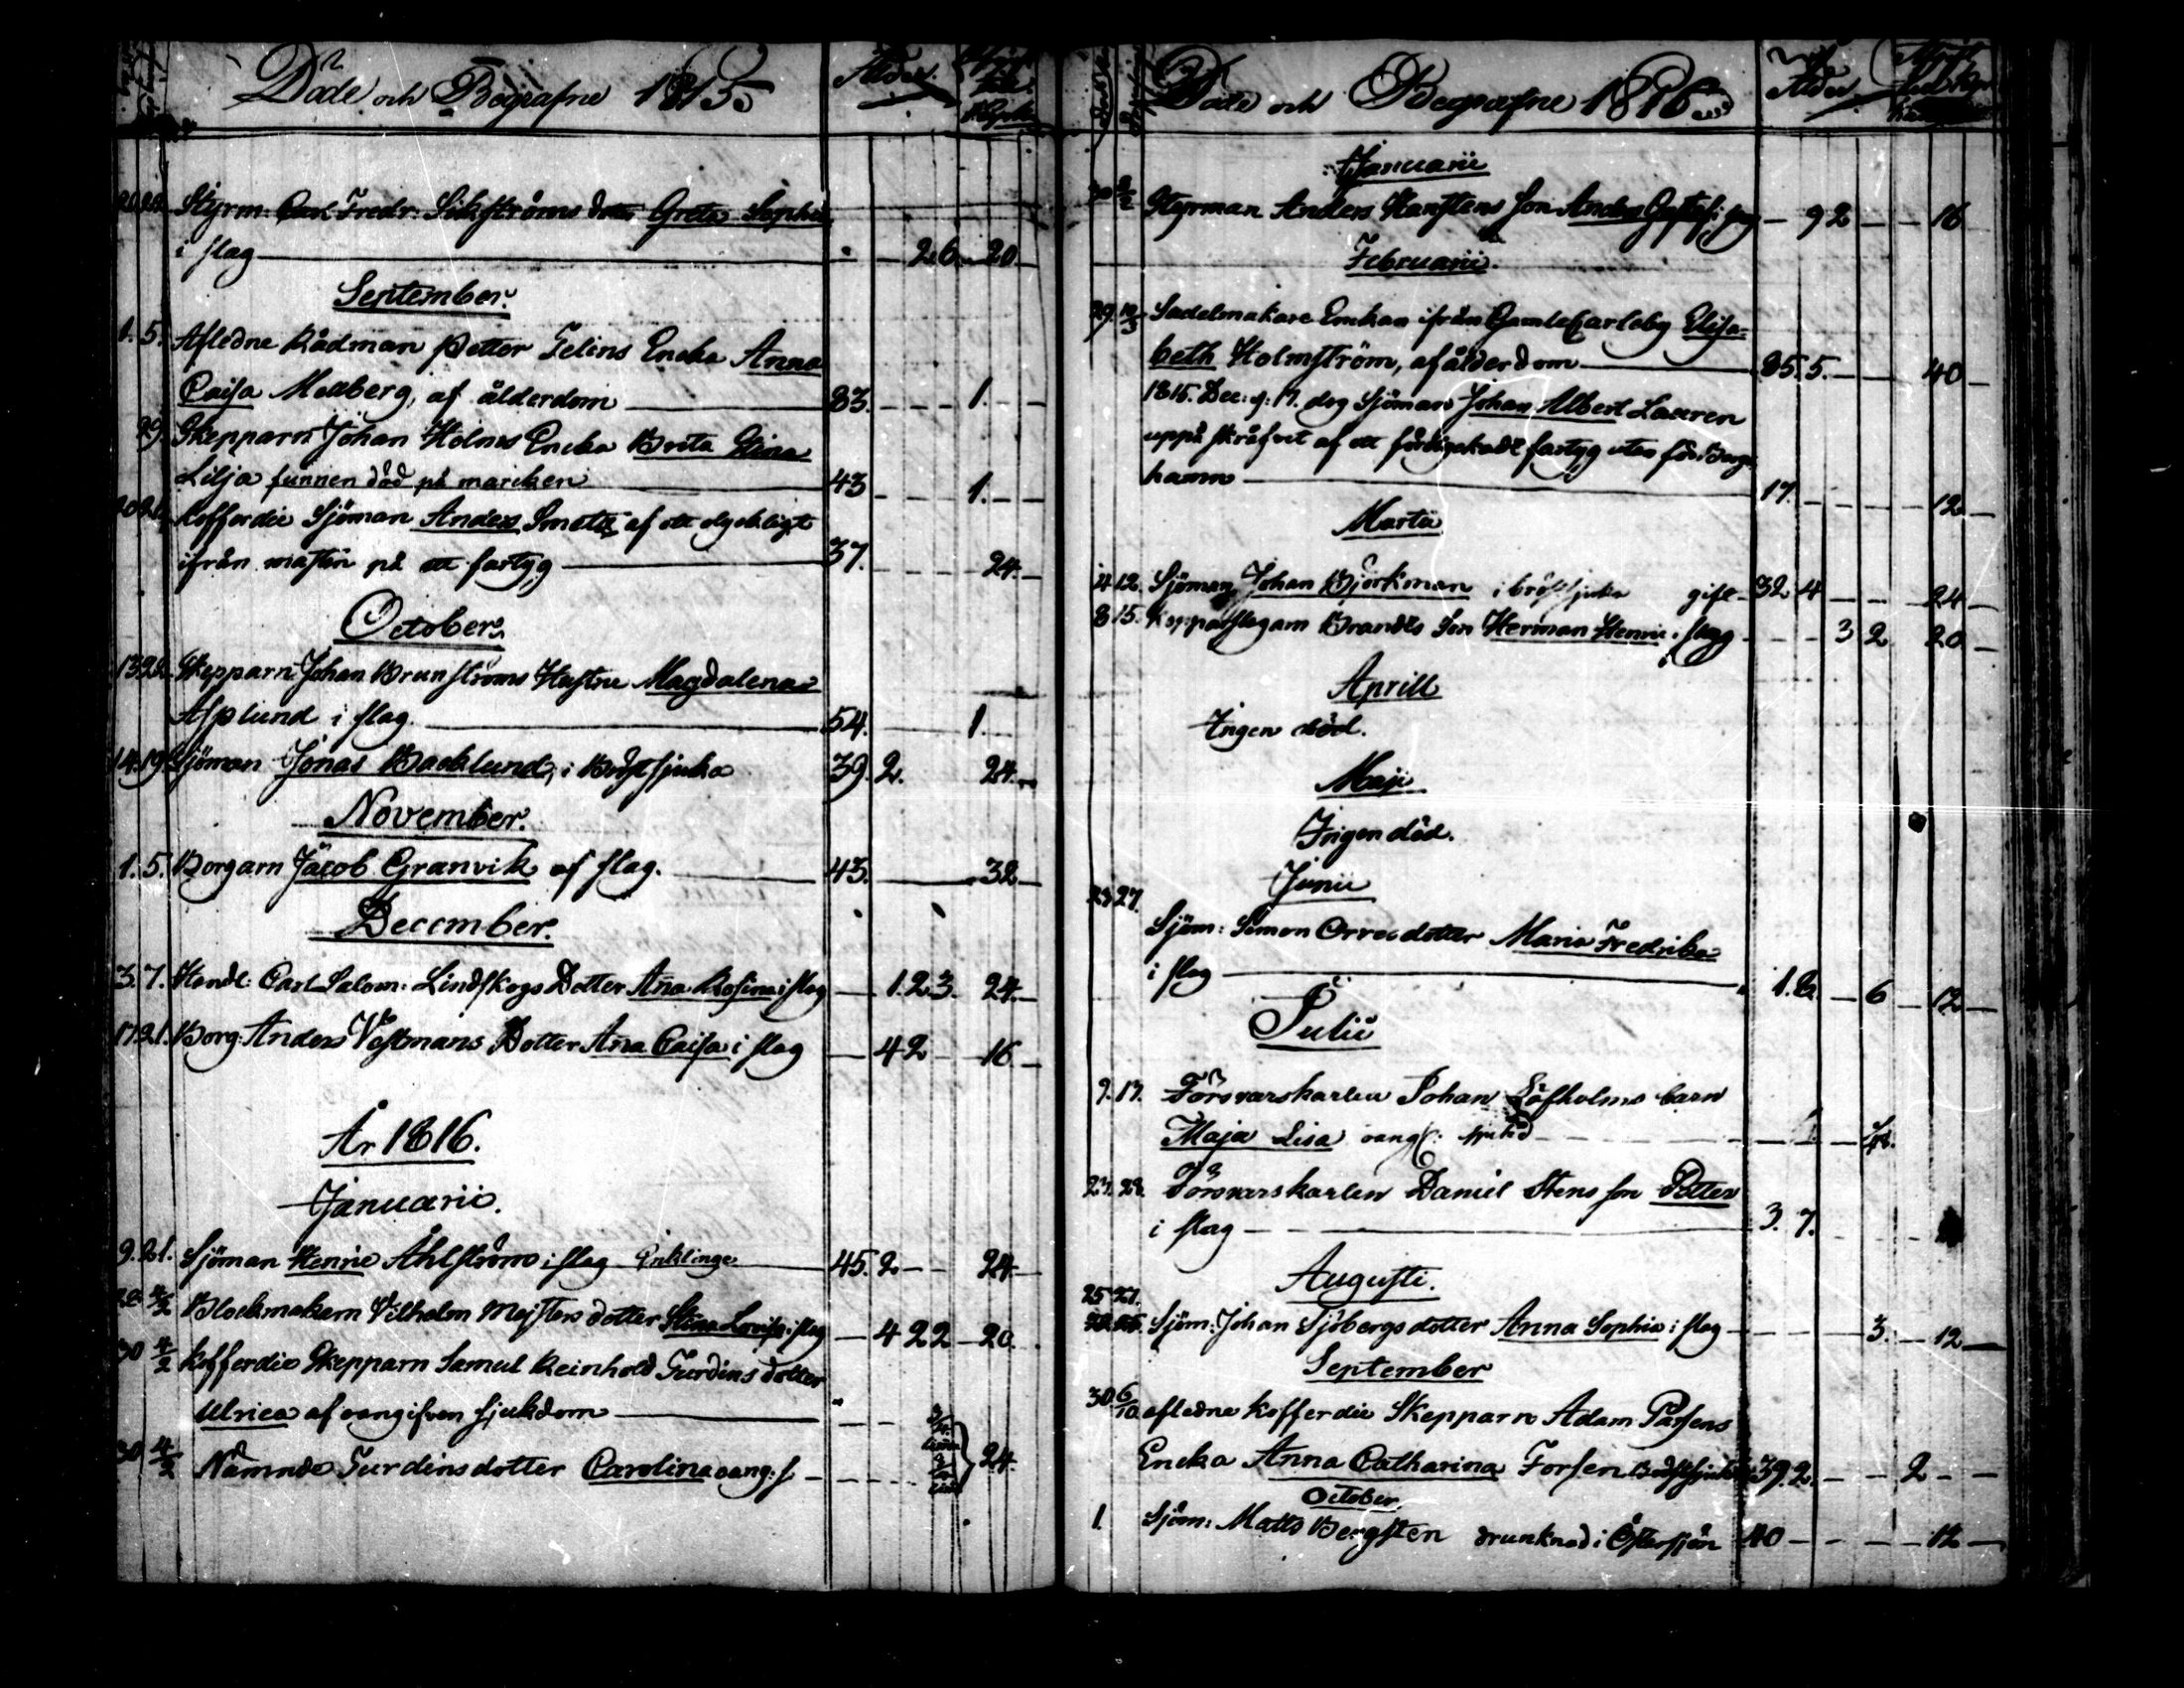 Döde och Begrafne 1815
Ålder.
20. 22. Styrm: Carl Fredr: Sikströms dotter Greta Sophia
i slag — 2.6. 20
September.
1. 5. Afledne Rådman Petter Telins Encka Anna
Caisa Medberg, af ålderdom 83. 1.
29. Skepparn Johan Holms Encka Brita Stina
Lilja funnen död på marcken 43 1.
20 Cofferdie Sjöman Anders af ett olyckligt
ifrån masten på ett fartyg 37. 24.
October.
13 22. Skepparn Johan Brunströms Hustru Magdalena
Asplund i slag. 54. 1.
14. 19. Sjöman Jonas Backlund, i Bröstsjuka 39. 2. 24.
November.
1. 5. Borgarn Jacob Granvik af slag. 43. 32
December.
3. 7. Handl: Carl Salom: Lindskogs Dotter Aña Rosina i slag — 1. 2 3. 24.
17. 21. Borg: Anders Vestmans Dotter Aña Caisa i slag — 4 2 — 16.
År 1816.
Januarii.
9. 21. Sjöman Henric Åhlström i slag Enklinge 45. 2 — 24.
4/2 Blockmakarn Vilhelm Mejsters dotter Stina Lovisa i slag — 4 2 2 — 20.
30 4/2 Cofferdie Skepparn Samuel Reinhold Turdins dotter
Ulrica af oangifven sjukdom
30 4/2 Nämnde Turdins dotter Carolina oang: s — 24.
Döde och Begrafne 1816
Ålder
Januarii
30 Styrman Anders Hanstens son Anders Gustaf i slag — 9 2 — 16
Februarii
29. 10/3 Sadelmakare Enckan ifrån GamleCarleby Elisa-
beth Holmström, af ålderdom 85. 5. 40
1815. Dec: d: 17. dog Sjöman Johan Albert Lauren
uppå skråfvet af ett förolyckadt fartyg utan för Borge
hamn 17. 12
Martii
4 12. Sjöman Johan Björkman i bröstsjuka gift 32 4 24
8 15. Kopparslagarn Brandts Son Herman Henric i slag 3 2 20
Aprill
Ingen död.
Maji
Ingen död.
Junii
23. 27.
Sjöm: Simon Orres dotter Maria Fredrika
i slag 6 12
Julii
9. 13. Försvarskarlen Johan Löfholms barn
Maja Lisa oangf: sjukd
23. 28. Försvarskarlen Daniel Stens son Petter
i slag 3. 7.
Augusti.
25 27.
Sjöm: Johan Sjöbergs dotter Anna Sophia i slag 3. 12
September
30 6/10 afledne Cofferdie Skepparn Adam Passens
Encka Anna Catharina Forsen Bröstsjuka 39. 2. 2
October.
1. Sjöm: Matts Bergsten drunknad i Östersjön 40 12